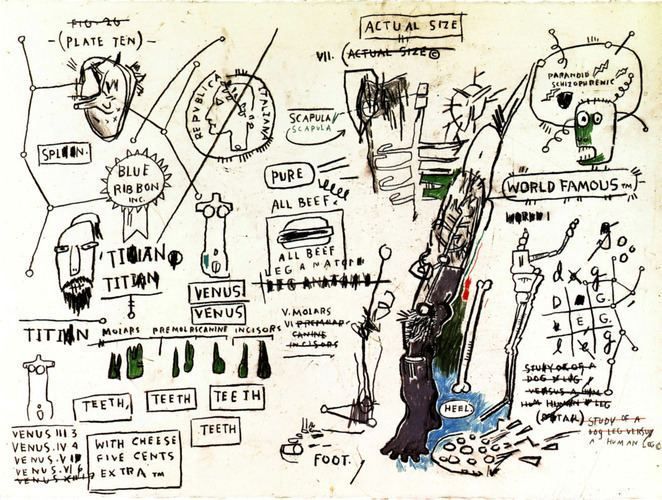 FIG. 26
-(PLATE TEN)-
SPLEEN.
BLUE
RIBBON
INC.
REPVBBLICA ITALIANA
TITIAN
TITIAN
TITIAN
MOLARS PREMOLAR CANINE INCISORS
TEETH,
TEETH
TEETH
TEETH
VENUS III 3
VENUS.IV 4
VENUS.V
VENUS.VI 6
VENUS XIII
WITH CHEESE
FIVE CENTS
EXTRA ™
VENUS
VENUS
ACTUAL SIZE
VII. (ACTUAL SIZE©
SCAPULA
SCAPULA
PURE
ALL BEEF
ALL BEEF
LEG ANATOMY
LEG ANATOMY
V.MOLARS
VI PREMOLAR
CANINE
INCISORS
FOOT.
HEEL.
PARANOID
SCHIZOPHRENIC
WORLD FAMOUS™
WORLD
d o g
D G.
E G.
l e g
STUDY OF A
DOG LEG
VERSUS A
HUM HUMAN LEG
(DETAIL)
STUDY OF A
DOG LEG VERSUS
A HUMAN LEG©